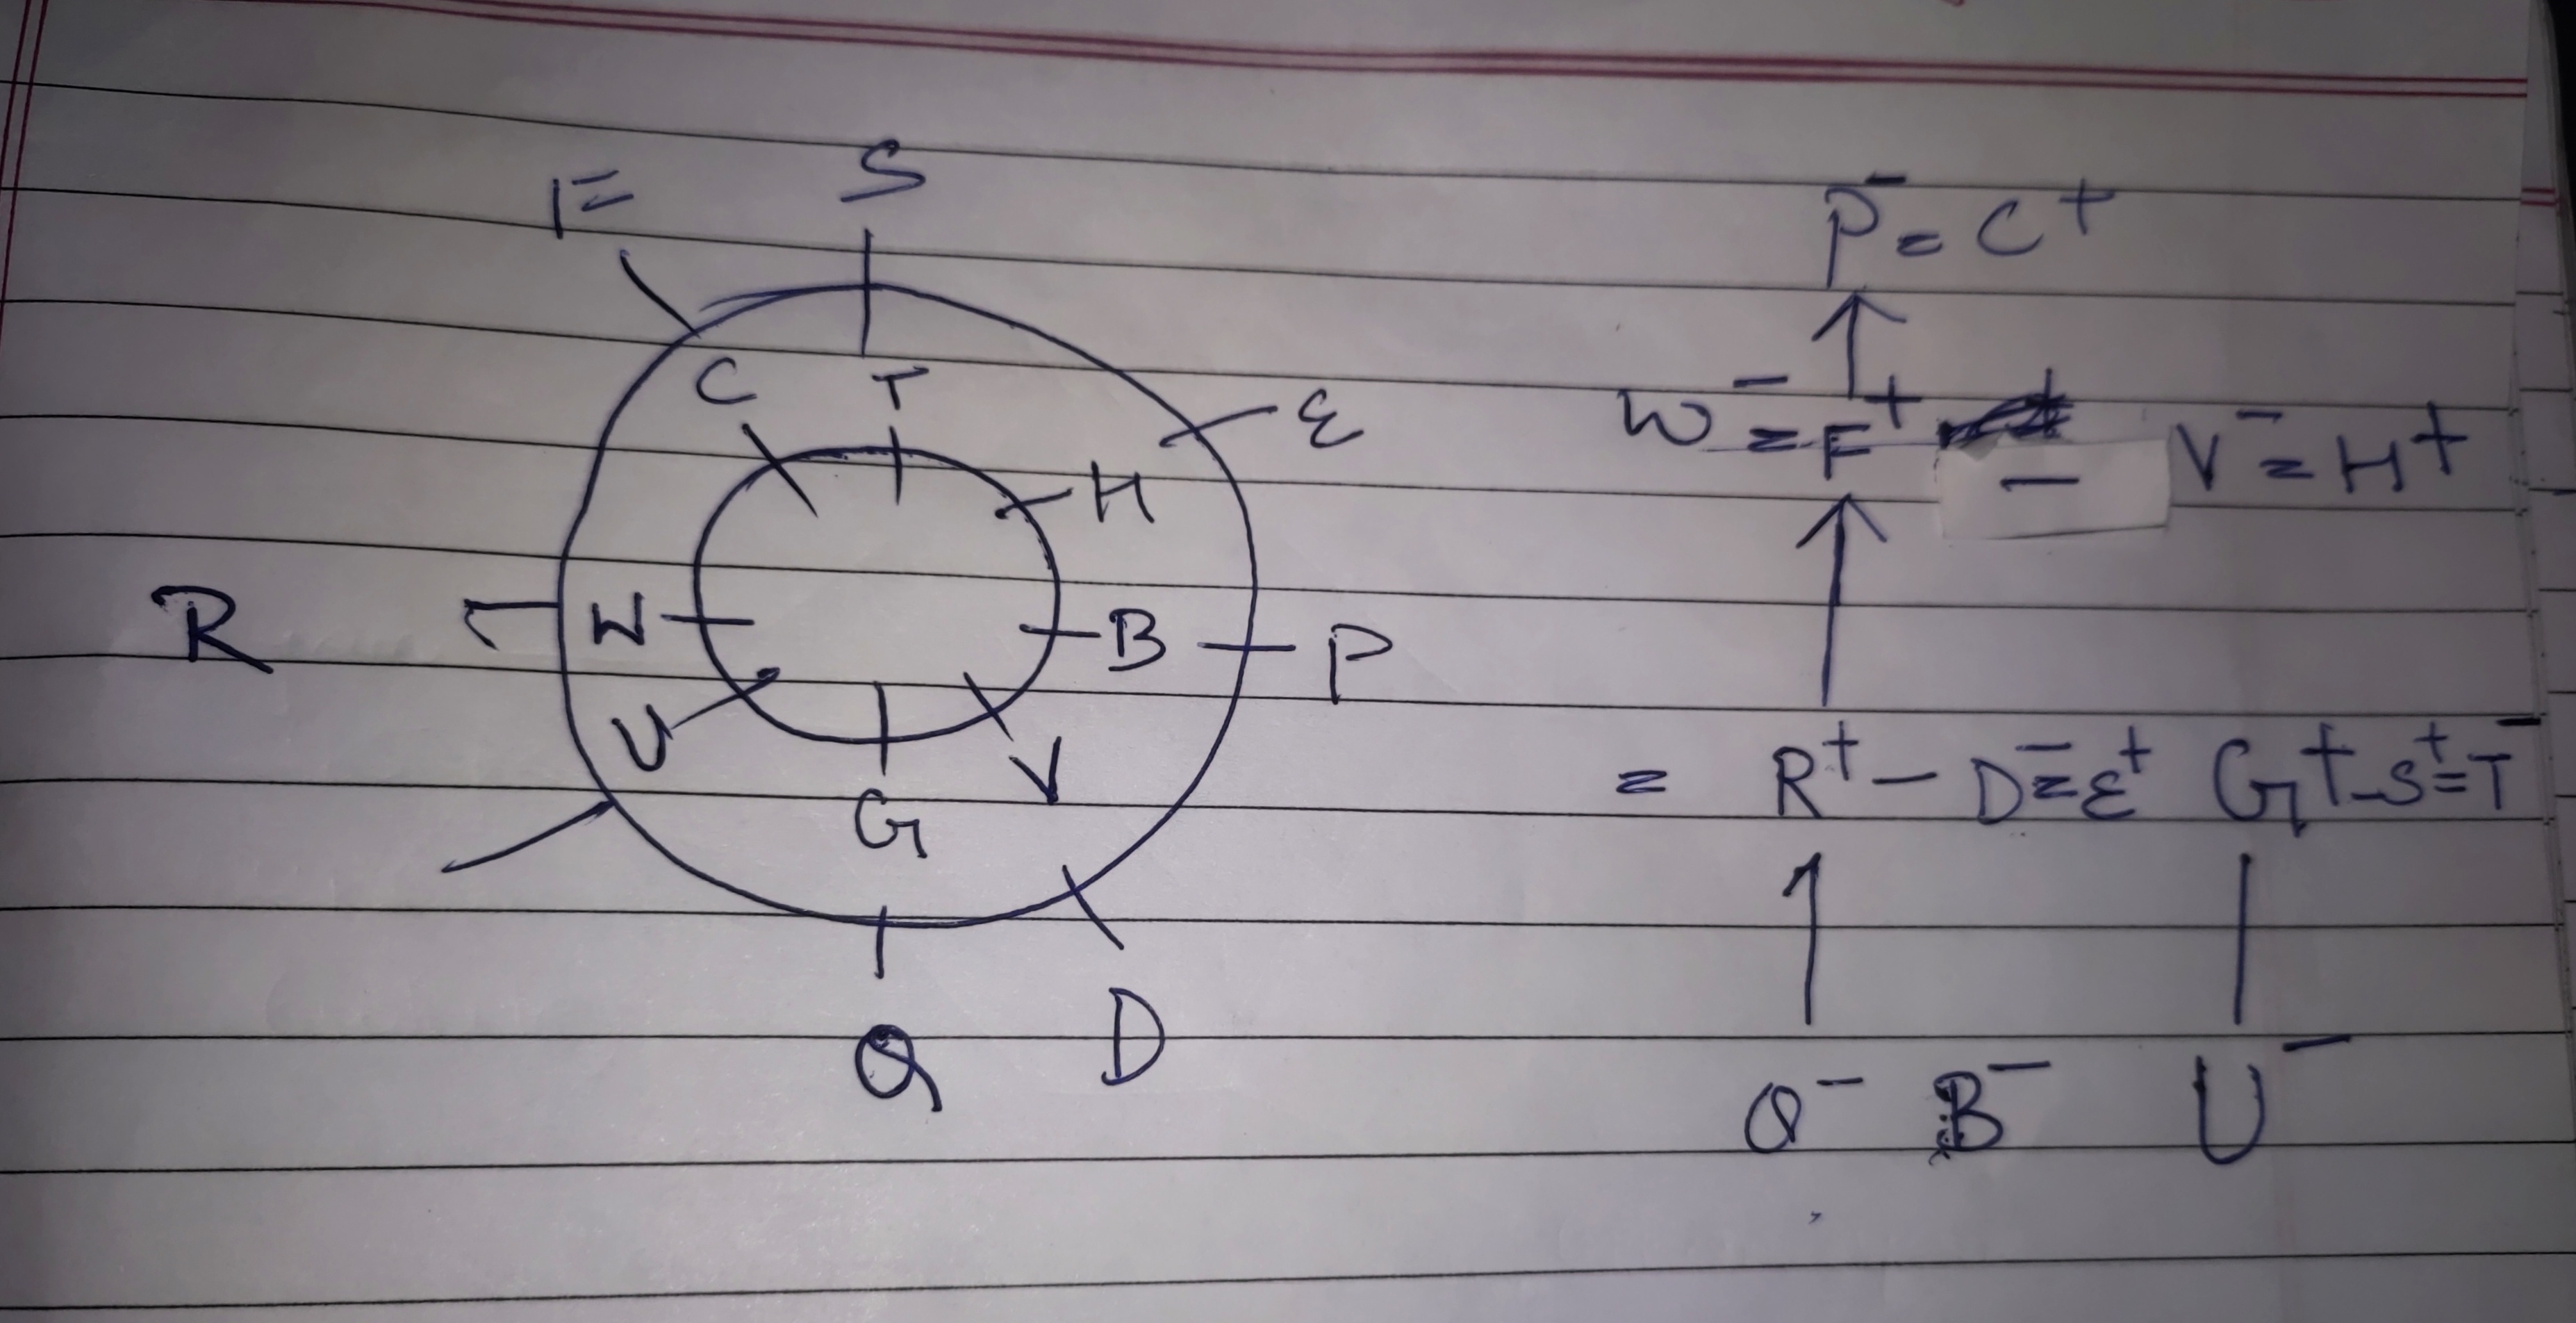 F S
C T
E
H
R W B P
U V
G
Q D
P⁻ = C⁺
W⁻ = F⁺ — V⁻ = H⁺
= R⁺ – D⁻ = E⁺ G⁺ – S⁺ = T⁻
Q⁻ B⁻ U⁻